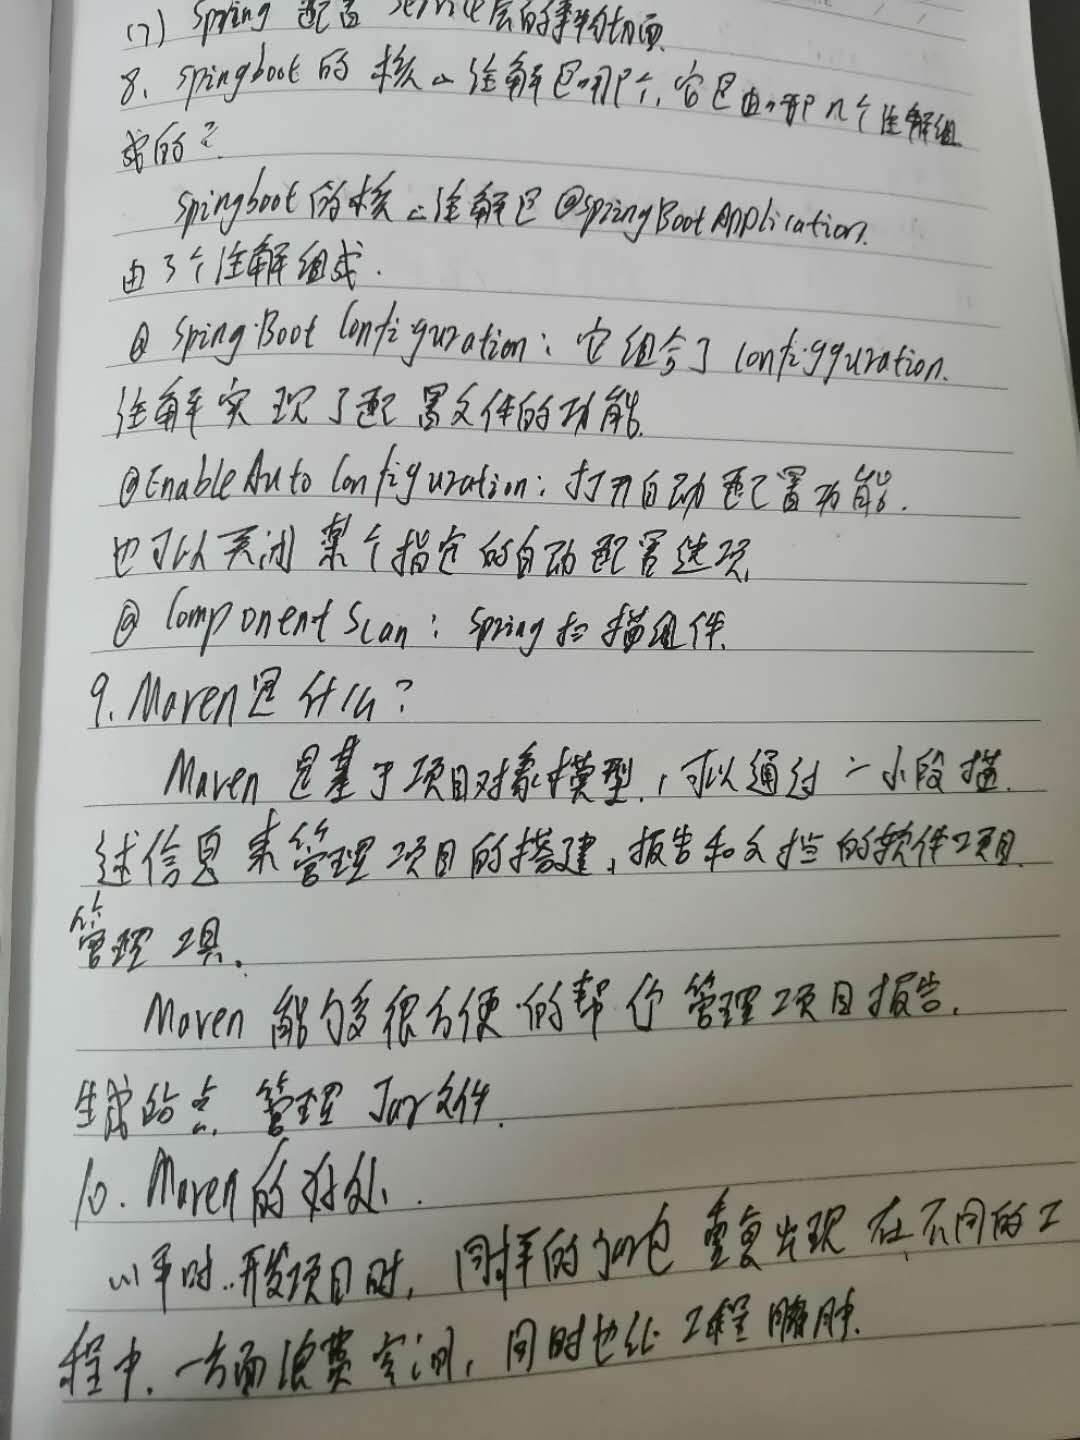 (7) Spring 配置 Service层的事物切面
8. Spingboot 的 核心注解是哪个,它是由哪几个注解组
成的?
Spingboot 的核心注解是 @SpringBootApplication.
由3个注解组成.
@ Sping Boot Configuration: 它组合了 Configguration.
注解实现了配置文件的功能.
@EnableAuto Configuration: 打开自动配置功能.
也可以关闭某个指定的自动配置选项
@ Component Scan: Spring扫描组件.
9. Maven是什么?
Maven 是基于项目对象模型,可以通过一小段描
述信息来管理项目的搭建,报告和文档的软件项目
管理工具.
Maven 能够多很方便的帮你管理项目报告.
生成站点.管理Jar文件.
10. Maven的好处.
(1) 平时..开发项目时,同样的jar包重复出现在不同的工
程中.一方面浪费空间,同时也让工程臃肿.